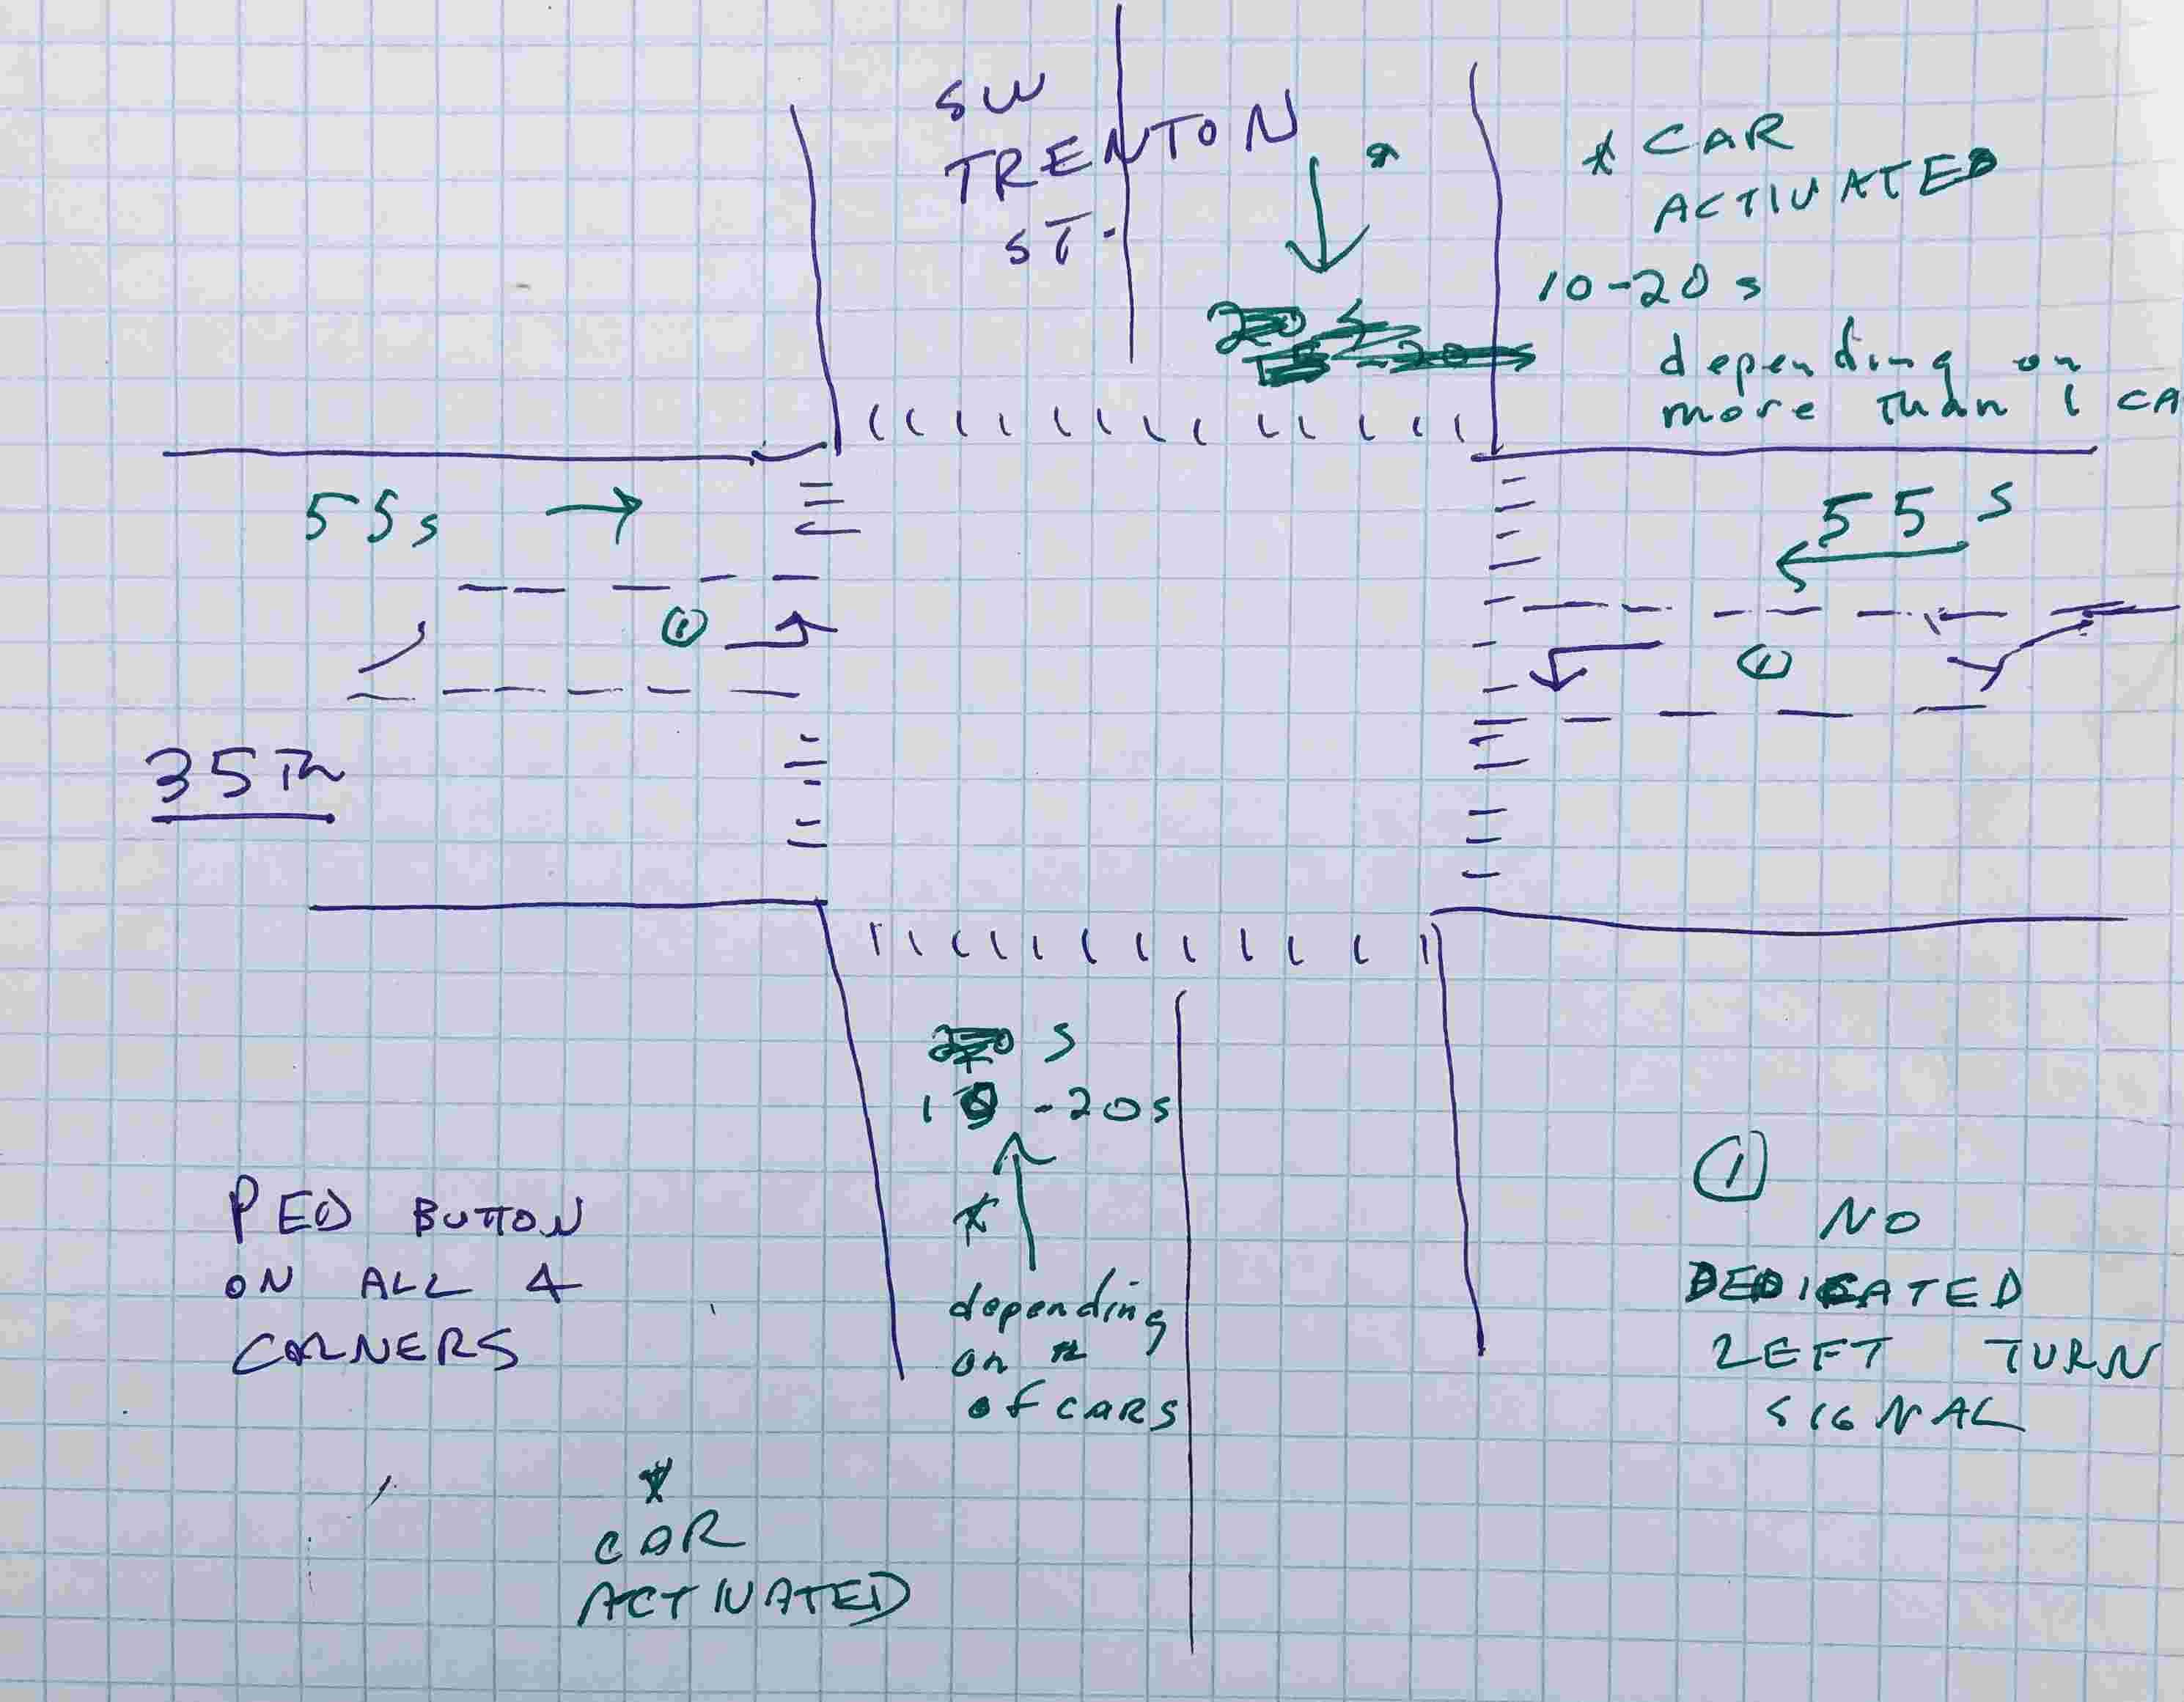 SW
TRENTON
ST.
* CAR
ACTIVATED
10-20 s
depending on
more than 1 CA
55s
55 s
1
1
35Th
s
10-20s
*
depending
on #
of cars
PED BUTTON
ON ALL 4
CORNERS
*
CAR
ACTIVATED
1
NO
DEDICATED
LEFT TURN
SIGNAL